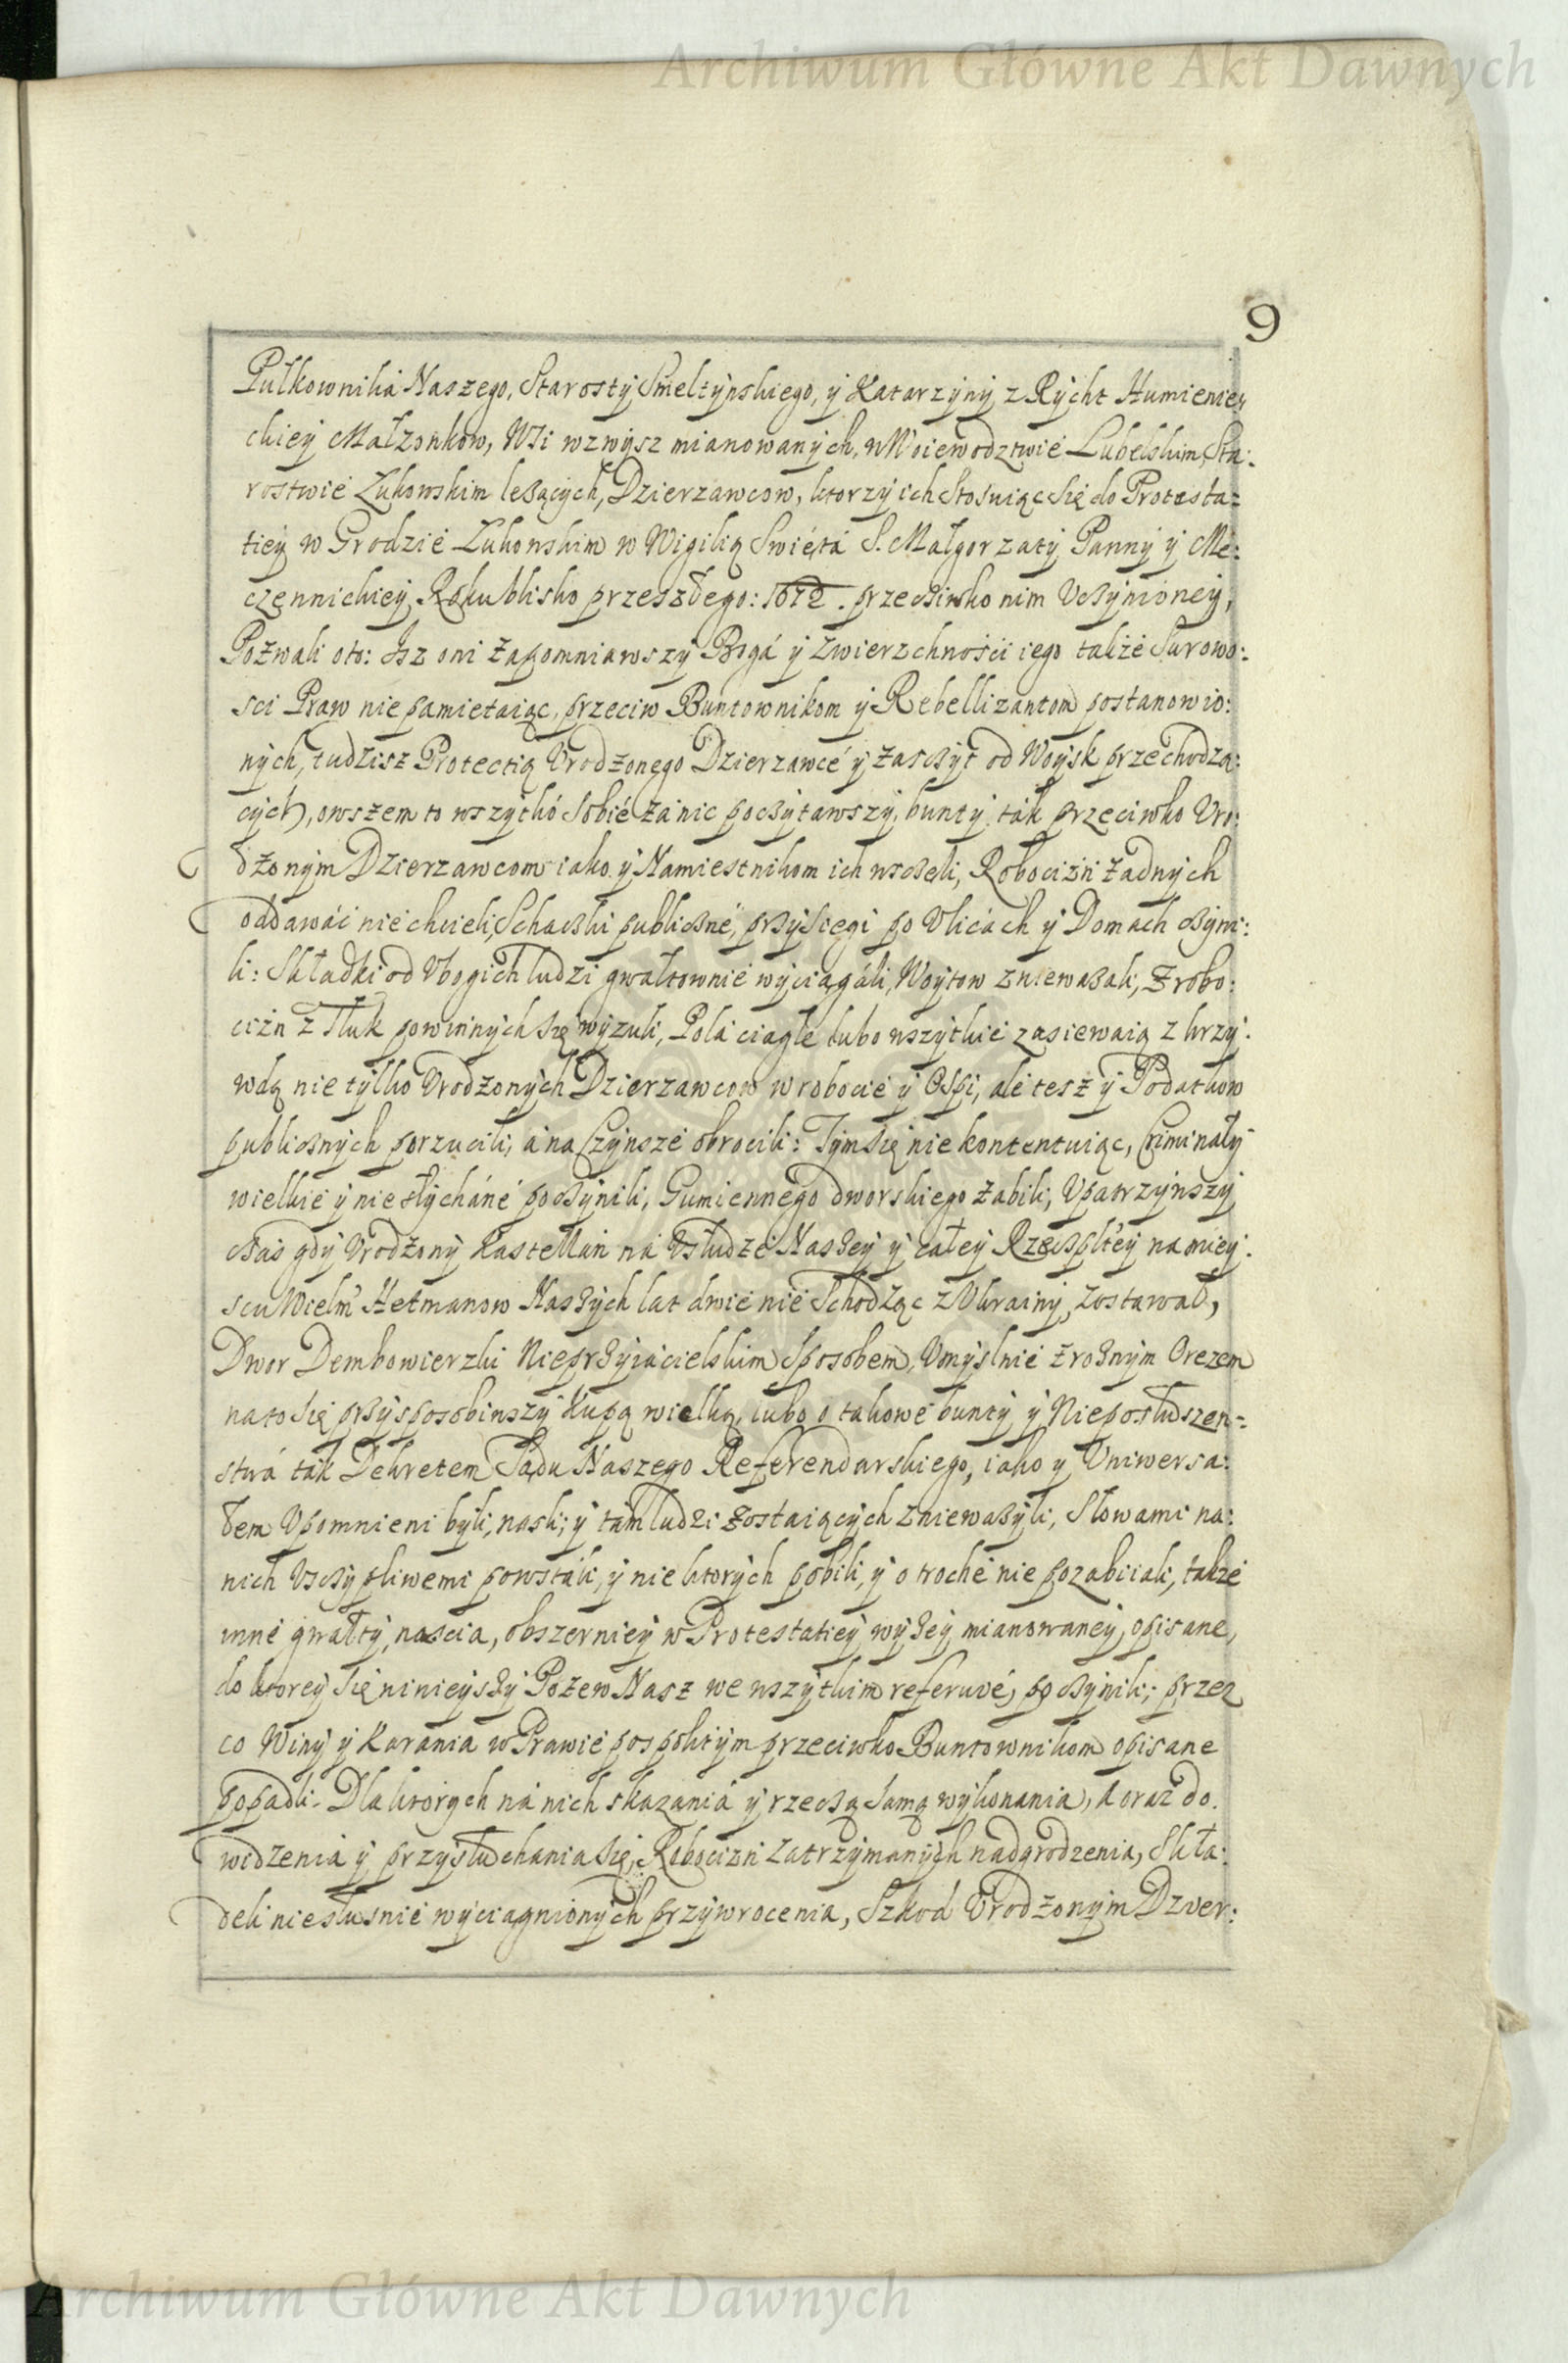 Archiwum Główne Akt Dawnych
9
Pułkownika Naszego, Starosty Smeltynskiego, y Katarzyny z Rycht Humieniec
ckiey Małzonkow, WSi wzwysz mianowanych, w Woiewodztwie Lubelskim, Sta:
rostwie Łukowskim leżących, Dzierzawcow, ktorzy ich Stosuiąc się do Protesta=
tiey w Grodzie Łukowskim w Wigilią Swięta S. Małgorzaty Panny y Mę:
czennickiey, Roku blisko przeszłego: 1672. przeciwko nim Uczynioney,
Pozwali oto: Isz oni zapomniawszy Boga y Zwierzchności iego także Surowo:
sci Praw nie pamietaiąc, przeciw Buntownikom y Rebellizantom postanowio:
nych, tudzisz Protectią Urodzonego Dzierzawce y zaszczyt od Woysk przechodzą:
cych, owszem to wszytko Sobie za nic poczytawszy, bunty tak przeciwko Uro:
dzonym Dzierzawcom iako y Namiestnikom ich wszczeli, Robocizn żadnych
oddawać nie chcieli, Schaczki publiczne, przysięgi po Ulicach y Domach czyni:
li: Składki od Ubogich ludzi gwałtownie wyciągali, Woytow zniewazali, z robo:
cizn z Tłuk powinnych się wyzuli, Pola ciągłe lubo wszytkie zasiewaią z krzy:
wdą nie tylko Urodzonych Dzierzawcow w robocie y Ospi, ale tesz y Podatkow
publicznych porzucili, a na Czynsze obrocili: Tym się nie kontentuiąc, Criminały
wielkie y niesłychane poczynili, Gumiennego dworskiego zabili, Upatrzywszy
czas gdy Urodzony Kasztellan na Usłudze Naszey y całey Rzeczpltey na miey:
scu Wielm Hetmanow Naszych lat dwie nie Schodząc z Ukrainy, zostawał,
Dwor Dembowierzki Nieprzyiacielskim Sposobem, Umyslnie z roznym Orezem
na to się przysposobiwszy Kupą wielką, lubo o takowe bunty y Nieposłuszen=
stwa tak Dekretem Sądu Naszego Referendarskiego, iako y Uniwersa:
łem Upomnieni byli, naszli; y tam ludzi zostaiących zniewazyli, Słowami na:
nich Uszczypliwemi powstali, y niektorych pobili, y o troche nie pozabiiali, także
inne gwałty, naścia, obszerniey w Protestatiey wyżey mianowaney, opisane,
do ktorey się ninieyszy Pozew Nasz we wszytkim referuie, poczynili; przez
co Winy y Karania w Prawie pospolitym przeciwko Buntownikom opisane
popadli. Dla ktorych na nich skazania y rzeczą samą wykonania, a oraz do.
widzenia y przysłuchania się, Robocizn zatrzymanych nadgrodzenia, Skła:
dek niesłusnie wyciągnionych przywrocenia, Szkod Urodzonym Dzier:
Archiwum Główne Akt Dawnych